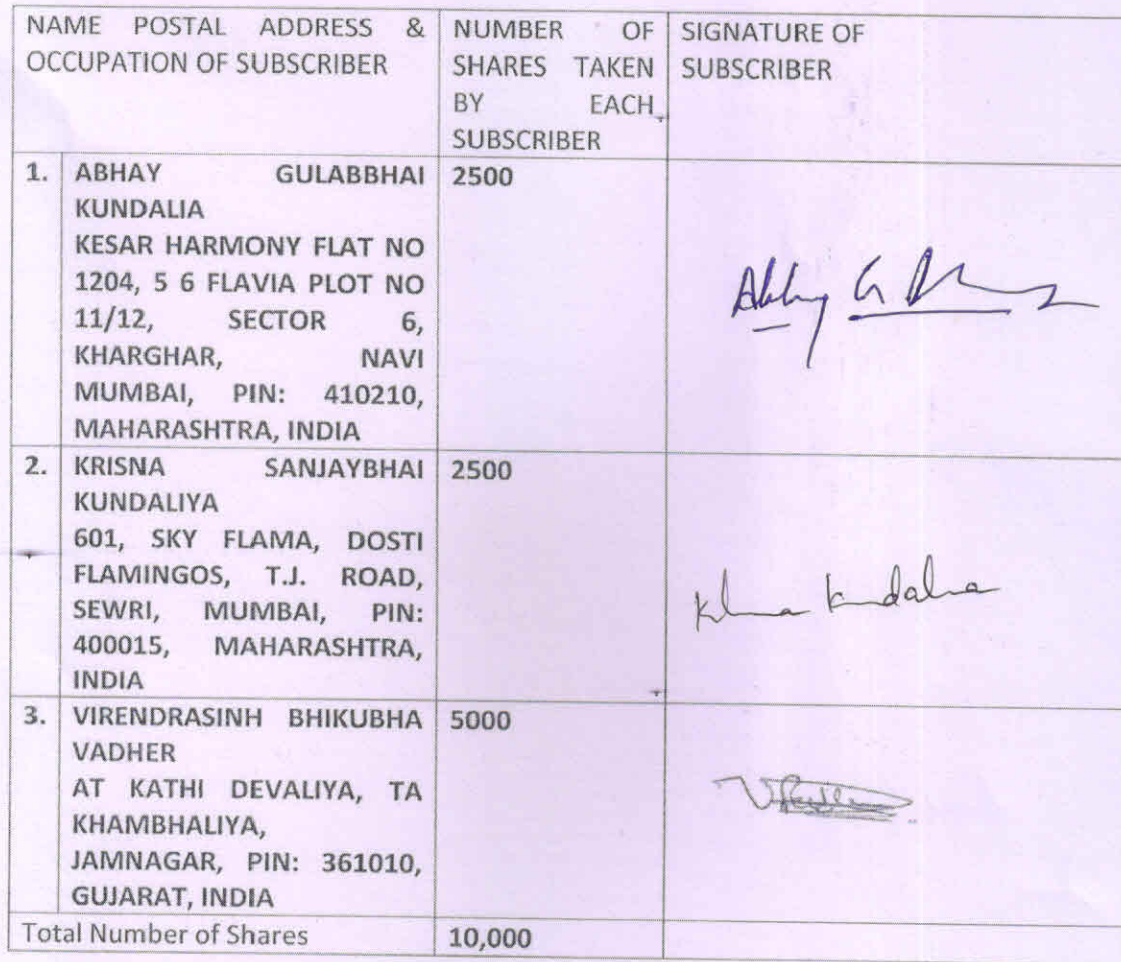 NAME POSTAL ADDRESS &
OCCUPATION OF SUBSCRIBER
NUMBER OF
SHARES TAKEN
BY EACH
SUBSCRIBER
SIGNATURE OF
SUBSCRIBER
1. ABHAY GULABBHAI
KUNDALIA
KESAR HARMONY FLAT NO
1204, 5 6 FLAVIA PLOT NO
11/12, SECTOR 6,
KHARGHAR, NAVI
MUMBAI, PIN: 410210,
MAHARASHTRA, INDIA
2500
Abhay G
2. KRISNA SANJAYBHAI
KUNDALIYA
601, SKY FLAMA, DOSTI
FLAMINGOS, T.J. ROAD,
SEWRI, MUMBAI, PIN:
400015, MAHARASHTRA,
INDIA
2500
3. VIRENDRASINH BHIKUBHA
VADHER
AT KATHI DEVALIYA, TA
KHAMBHALIYA,
JAMNAGAR, PIN: 361010,
GUJARAT, INDIA
5000
Total Number of Shares
10,000